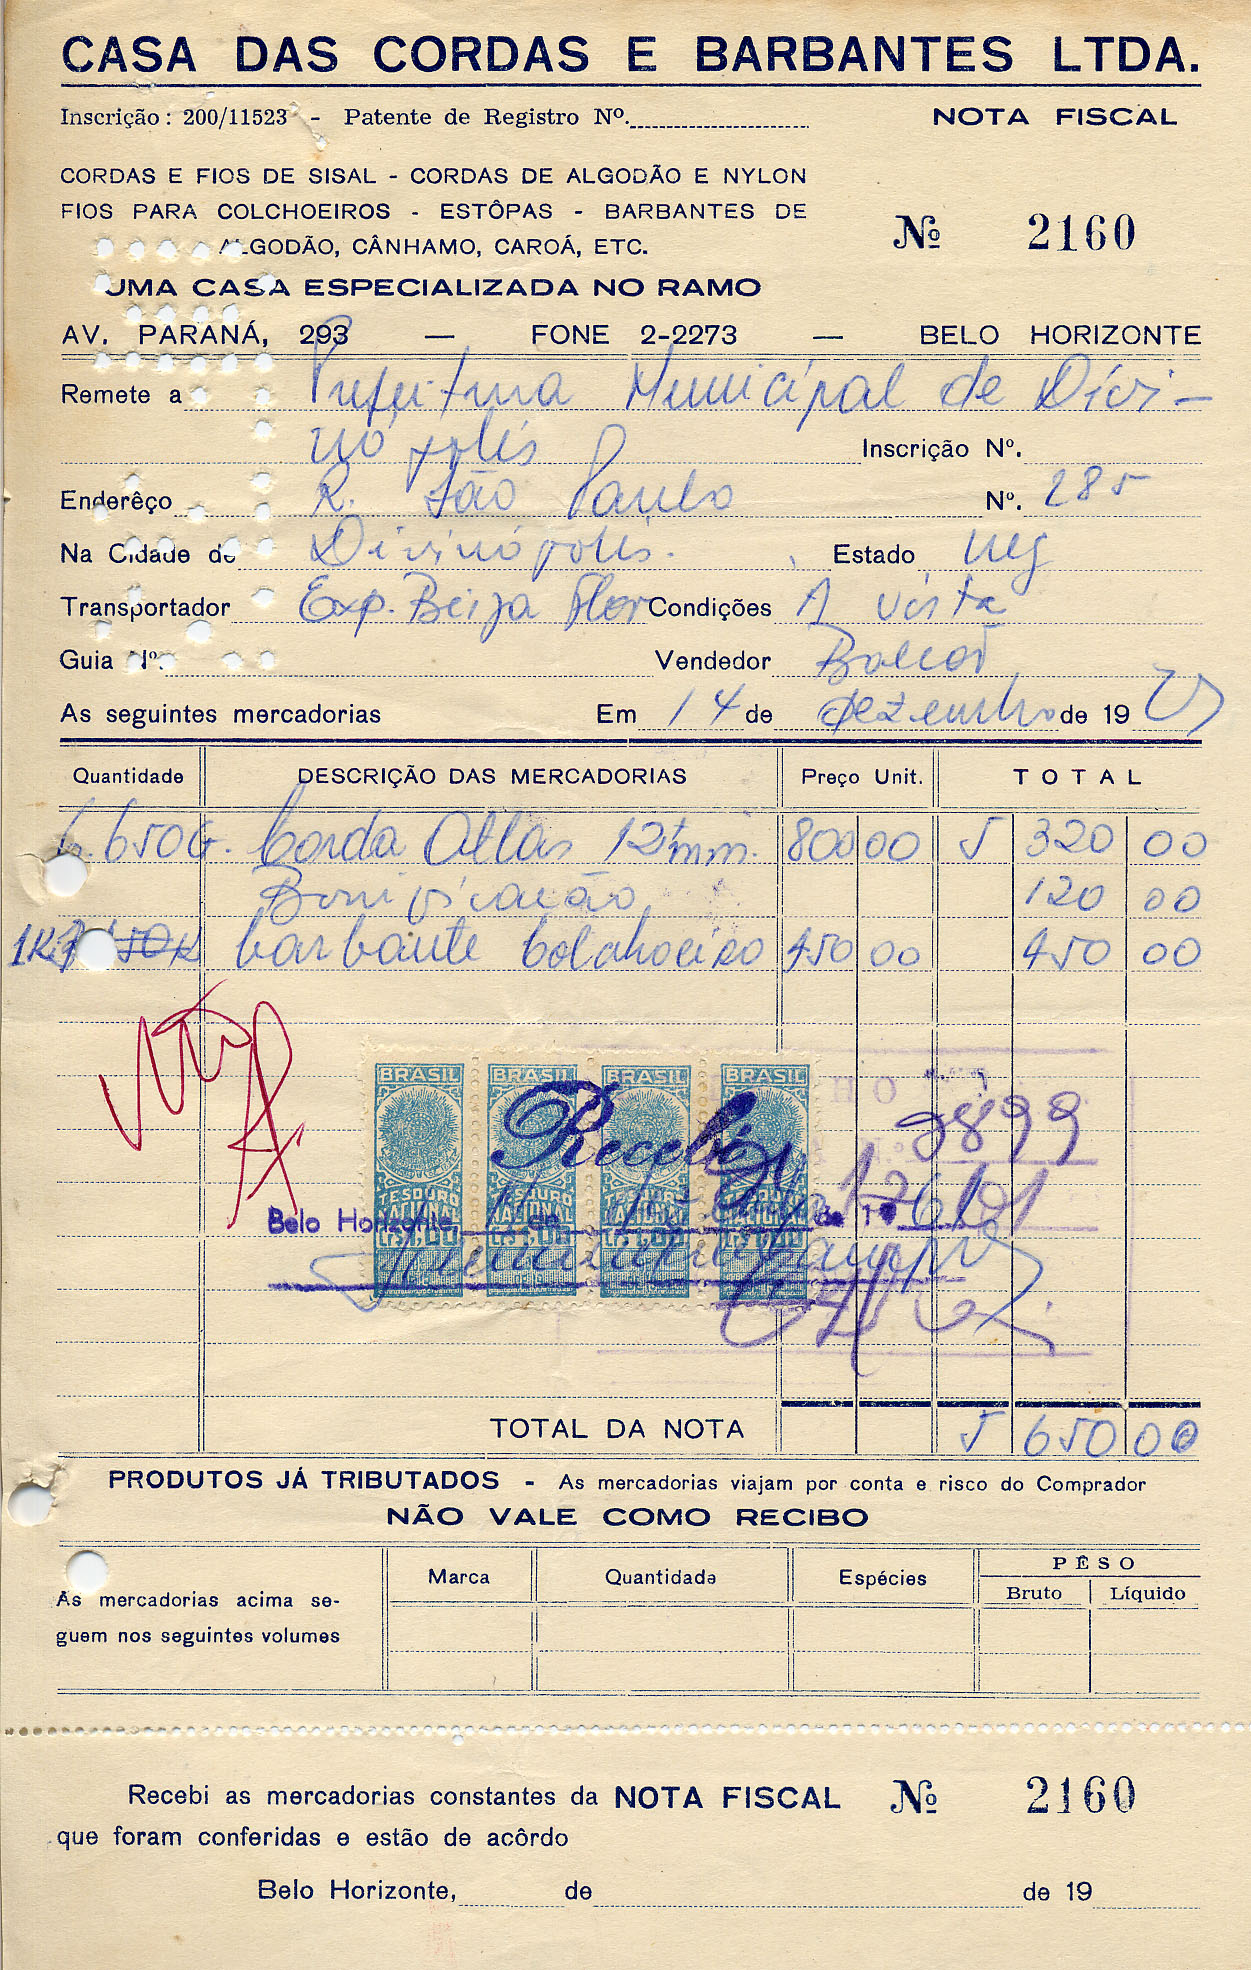 CASA DAS CORDAS E BARBANTES LTDA.
Inscrição: 200/11523 - Patente de Registro Nº. NOTA FISCAL
CORDAS E FIOS DE SISAL - CORDAS DE ALGODÃO E NYLON
FIOS PARA COLCHOEIROS - ESTÔPAS - BARBANTES DE
ALGODÃO, CÂNHAMO, CAROÁ, ETC.
Nº 2160
UMA CASA ESPECIALIZADA NO RAMO
AV. PARANÁ, 293 — FONE 2-2273 — BELO HORIZONTE
Remete a Prefeitura Municipal de Divi-
nópolis Inscrição Nº.
Enderêço R. São Paulo Nº. 285
Na Cidade de Divinópolis. Estado
Transportador Exp. Beija Flor Condições A vista
Guia Nº. Vendedor Balcão
As seguintes mercadorias Em 14 de dezembro de 19
Quantidade DESCRIÇÃO DAS MERCADORIAS Preço Unit. TOTAL
650G. Corda Atlas 12 mm. 800 00 320 00
Bonificação 120 00
1K barbante colchoeiro 450 00 450 00
BRASIL BRASIL BRASIL BRASIL
Recebi
TESOURO TESOURO TESOURO TESOURO
NACIONAL NACIONAL NACIONAL NACIONAL
Belo Horizonte, de de 19
TOTAL DA NOTA 650 00
PRODUTOS JÁ TRIBUTADOS - As mercadorias viajam por conta e risco do Comprador
NÃO VALE COMO RECIBO
As mercadorias acima se-
guem nos seguintes volumes
Marca Quantidade Espécies PÊSO
Bruto Líquido
Recebi as mercadorias constantes da NOTA FISCAL Nº 2160
que foram conferidas e estão de acôrdo
Belo Horizonte, de de 19